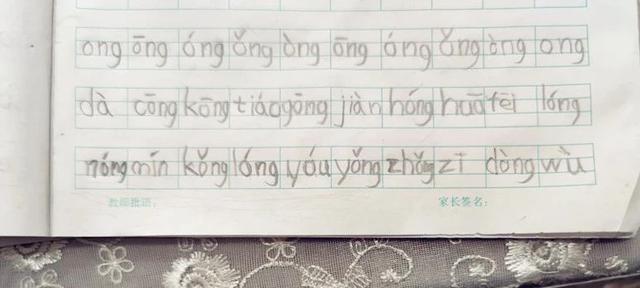 ong ōng óng ǒng òng ōng óng ǒng òng ong
dà cōng kōng tiáo gōng jiàn hóng huā fēi lóng
nóng mín kǒng lóng yóu yǒng zhǒng zī dòng wù
教师批语： 家长签名：